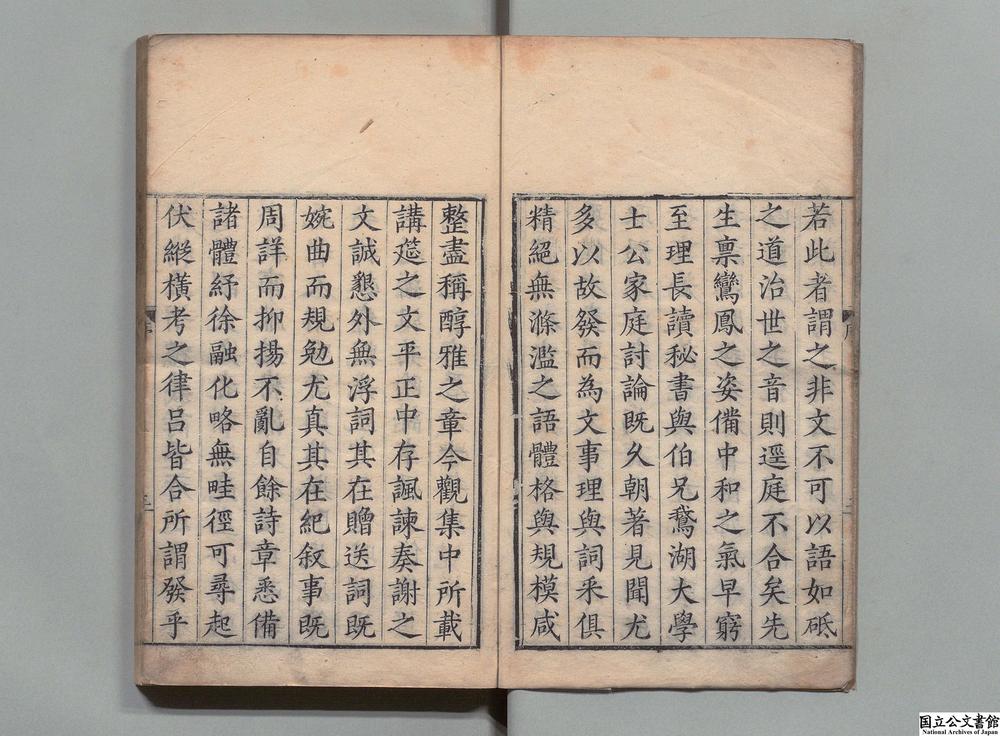 若此者謂之非文不可以語如砥
之道治世之音則逕庭不合矣先
生禀鸞鳳之姿備中和之氣早窮
至理長讀秘書與伯兄鵞湖大學
士公家庭討論既久朝著見聞尤
多以故發而為文事理與詞釆俱
精絕無滌濫之語體格與規模咸
整盡稱醇雅之章今觀集中所載
講筵之文平正中存諷諫奏謝之
文誠懇外無浮詞其在贈送詞既
婉曲而規勉尤真其在紀敘事既
周詳而抑揚不亂自餘詩章悉備
諸體紓徐融化略無畦徑可尋起
伏縱橫考之律吕皆合所謂發乎
序
三
国立公文書館
National Archives of Japan